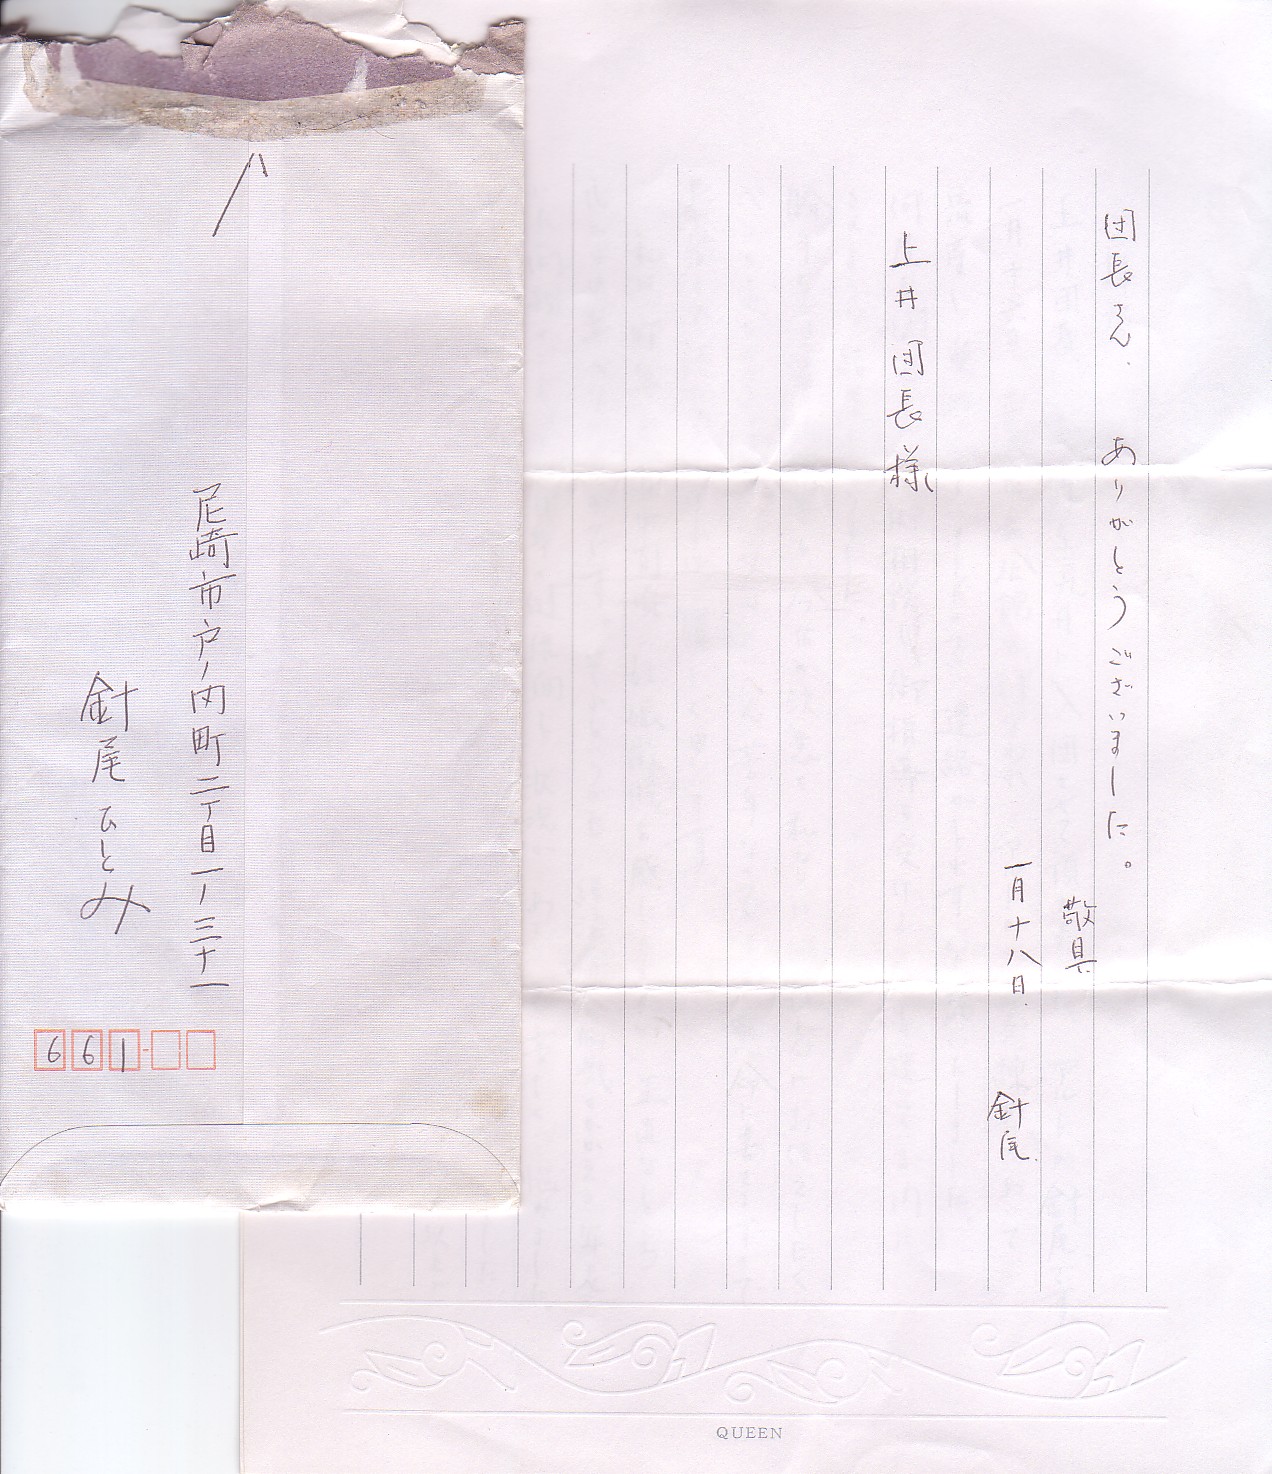 団長さん、ありがとうございました。
敬具
一月十八日 針尾
上井団長様
尼崎市戸ノ内町二丁目一ー三十一
針尾ひとみ
661-
QUEEN